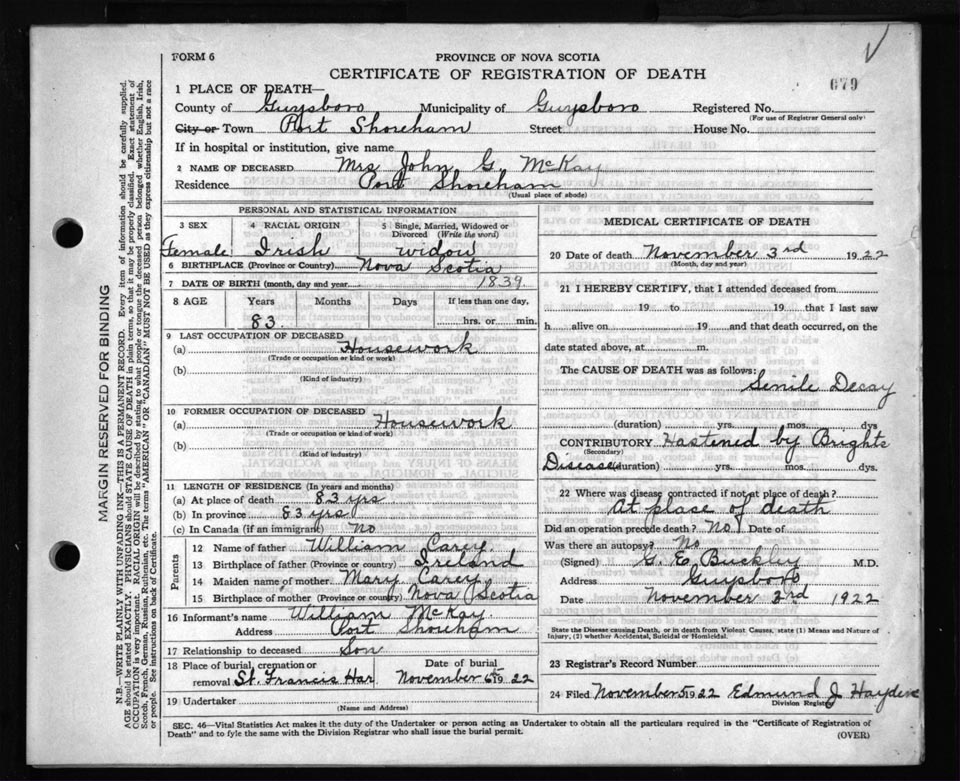 FORM 6
PROVINCE OF NOVA SCOTIA
CERTIFICATE OF REGISTRATION OF DEATH
679
1 PLACE OF DEATH—
County of Guysboro Municipality of Guysboro Registered No.
(For use of Registrar General only)
City or Town Port Shoreham Street House No.
If in hospital or institution, give name
2 NAME OF DECEASED Mrs John G. McKay
Residence Port Shoreham
(Usual place of abode)
PERSONAL AND STATISTICAL INFORMATION
3 SEX 4 RACIAL ORIGIN 5 Single, Married, Widowed or Divorced (Write the word)
Female Irish widow
6 BIRTHPLACE (Province or Country) Nova Scotia
7 DATE OF BIRTH (month, day and year) 1839
8 AGE Years Months Days If less than one day,
83. hrs. or min.
9 LAST OCCUPATION OF DECEASED
(a) Housework
(Trade or occupation or kind or work)
(b)
(Kind of industry)
10 FORMER OCCUPATION OF DECEASED
(a) Housework
(Trade or occupation or kind of work)
(b)
(Kind of industry)
11 LENGTH OF RESIDENCE (In years and months)
(a) At place of death 83 yrs
(b) In province 83 yrs
(c) In Canada (if an immigrant) No
Parents
12 Name of father William Carey.
13 Birthplace of father (Province or Country) Ireland
14 Maiden name of mother Mary Carey
15 Birthplace of mother (Province or country) Nova Scotia
16 Informant's name William McKay
Address Port Shoreham
17 Relationship to deceased Son
18 Place of burial, cremation or removal St. Francis Har
Date of burial November 5th 1922
19 Undertaker
(Name and Address)
MEDICAL CERTIFICATE OF DEATH
20 Date of death November 3rd 1922
(Month, day and year)
21 I HEREBY CERTIFY, that I attended deceased from
19 to 19 that I last saw
h alive on 19 and that death occurred, on
date stated above, at m.
The CAUSE OF DEATH was as follows:
Senile Decay
(duration) yrs. mos. dys.
CONTRIBUTORY Hastened by Brights
(Secondary)
Disease (duration) yrs. mos. dys.
22 Where was disease contracted if not at place of death?
At place of death
Did an operation precede death? No Date of
Was there an autopsy? No
(Signed) G. E. Buckley M.D.
Address Guysboro
Date November 3rd 1922
State the Disease causing Death, or in death from Violent Causes, state (1) Means and Nature of
Injury, (2) whether Accidental, Suicidal or Homicidal.
23 Registrar's Record Number
24 Filed November 5 1922 Edmund J
Division Registrar
SEC. 46—Vital Statistics Act makes it the duty of the Undertaker or person acting as Undertaker to obtain all the particulars required in the "Certificate of Registration of
Death" and to fyle the same with the Division Registrar who shall issue the burial permit.
(OVER)
MARGIN RESERVED FOR BINDING
N.B.—WRITE PLAINLY WITH UNFADING INK—THIS IS A PERMANENT RECORD. Every item of information should be carefully supplied.
AGE should be stated EXACTLY. PHYSICIANS should STATE CAUSE OF DEATH in plain terms, so that it may be properly classified. Exact statement of
OCCUPATION is very important. RACIAL ORIGIN will be described by stating to what people or tongue the deceased person belonged whether English, Irish,
Scotch, French, German, Russian, Ruthenian, etc. The terms "AMERICAN" or "CANADIAN" MUST NOT BE USED as they express citizenship but not a race
or people. See instructions on back of Certificate.